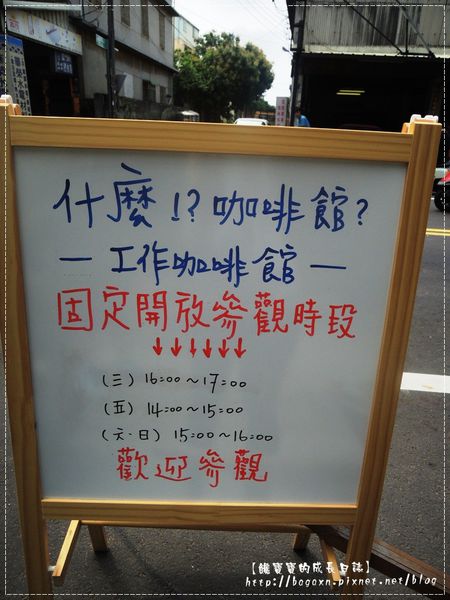 什麼!?咖啡館?
—工作咖啡館—
固定開放參觀時段
↓↓↓↓↓↓
(三) 16:00~17:00
(五) 14:00~15:00
(六.日) 15:00~16:00
歡迎參觀
【饅寶寶的成長日誌】
http://bogoxn.pixnet.net/blog